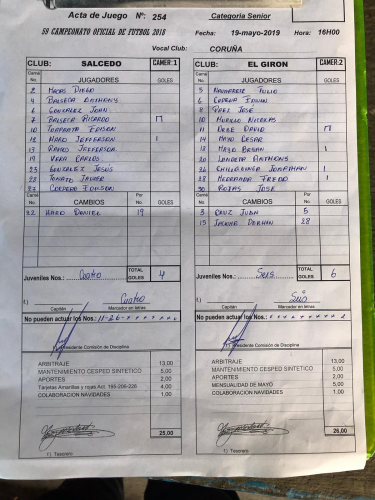 Acta de Juego Nº: 254 Categoría Senior
59 CAMPEONATO OFICIAL DE FUTBOL 2018 Fecha: 19-mayo-2019 Hora: 16H00
Vocal Club: CORUÑA
CLUB: SALCEDO CAMER:1
JUGADORES GOLES
2 Diego
4 Anthony
6 Gonzalez John
7 Ricardo
10 Edison
12 Haro Jefferson I
13 Jefferson
19 Vera Carlos
23 Gonzalez Jesús
28 Javier
27 Cordero Edison
CAMBIOS Por No. GOLES
22 Haro Daniel 19
Juveniles Nos.: Cuatro TOTAL GOLES 4
f.) Cuatro
Capitán Marcador en letras
No pueden actuar los Nos.: 11-26
Presidente Comisión de Disciplina
ARBITRAJE 13,00
MANTENIMIENTO CESPED SINTETICO 5,00
APORTES 2,00
Tarjetas Amarillas y rojas Act. 195-206-226 4,00
COLABORACION NAVIDADES 1,00
25,00
f.) Tesorero
CLUB: EL GIRON CAMER:2
JUGADORES GOLES
5 Navarrete Julio
6
8 Paez José
10 Murillo Nicolas
11 David
14 Mayo Cesar
18 Mayo I
20 Anthony
26 Chiliquinga Jonathan I
28 Fredo I
30 Rojas José
CAMBIOS Por No. GOLES
3 Cruz Juan 5
15 28
Juveniles Nos.: Seis TOTAL GOLES 6
f.) Seis
Capitán Marcador en letras
No pueden actuar los Nos.:
Presidente Comisión de Disciplina
ARBITRAJE 13,00
MANTENIMIENTO CESPED SINTETICO 5,00
APORTES 2,00
MENSUALIDAD DE MAYO 5,00
COLABORACION NAVIDADES 1,00
26,00
f.) Tesorero